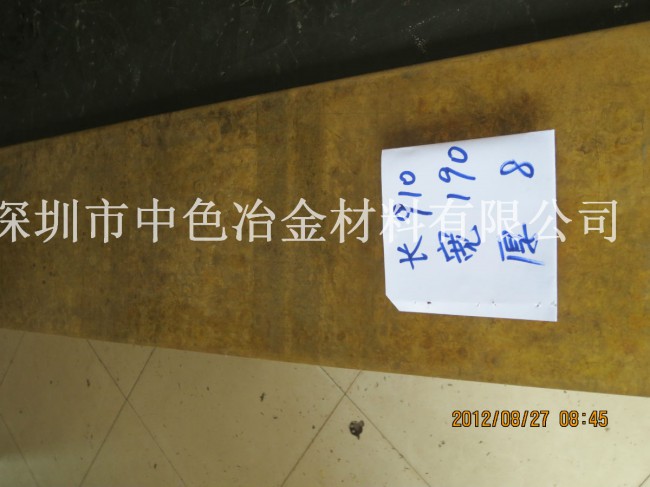 长 910
宽 190
厚 8
深圳市中色冶金材料有限公司
2012/08/27 08:45